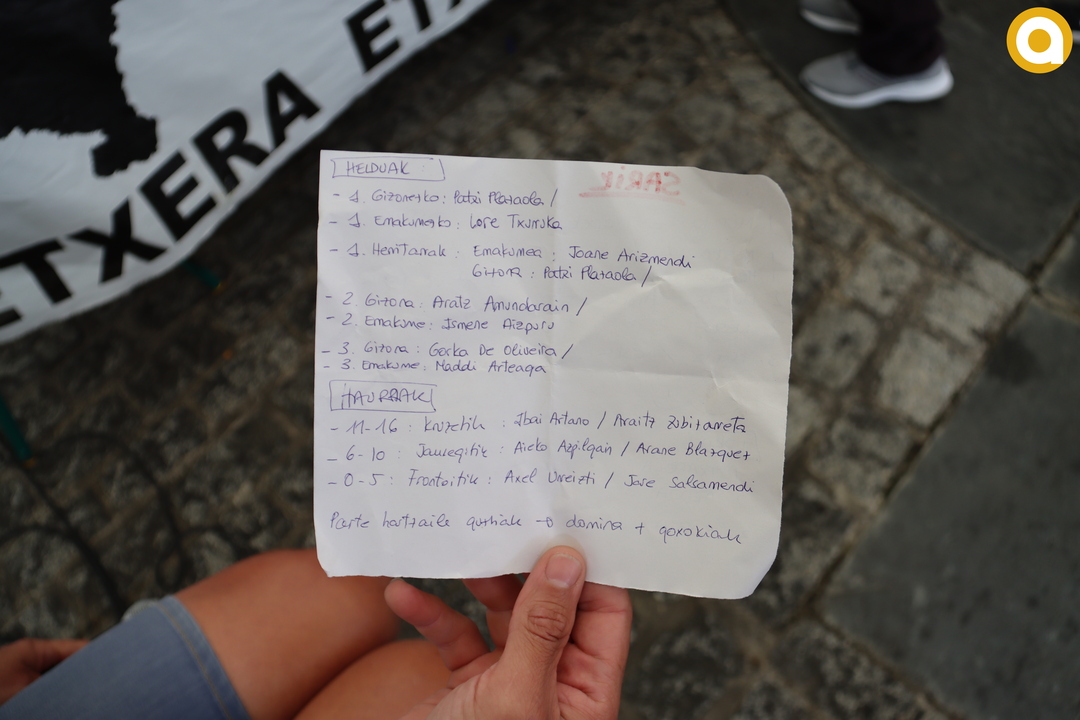 ETXERA ETX
HELDUAK
- 1. Gizonezko: Patzi Plazaola /
- 1. Emakumezko: Lore Txurruka
- 1. Herritarrak: Emakumea: Joane Arizmendi
Gizona: Patzi Plazaola /
- 2. Gizona: Aratz Amundarain /
- 2. Emakume: Ismene Aizpuru
- 3. Gizona: Gorka De Oliveira /
- 3. Emakume: Maddi Arteaga
HAURRAK
- 11-16: Kruzetik: Ibai Artano / Araitz Zubizarreta
- 6-10: Jauregitik: Aieko Azpilgain / Arane Blazquez
- 0-5: Frontoitik: Axel Ureizti / Jare Salsamendi
Parte hartzaile guztiak → domina + goxokiak